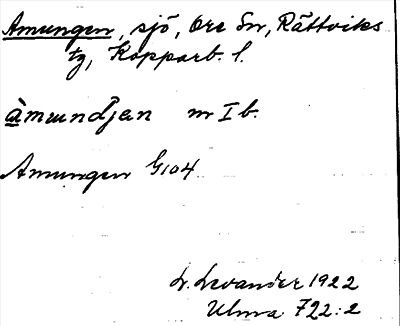 Amungen, sjö, Ore sn, Rättviks
tg, Kopparb. l.
àmundjen m I b.
Amungen G104
L. Levander 1922
Ulma 722:2